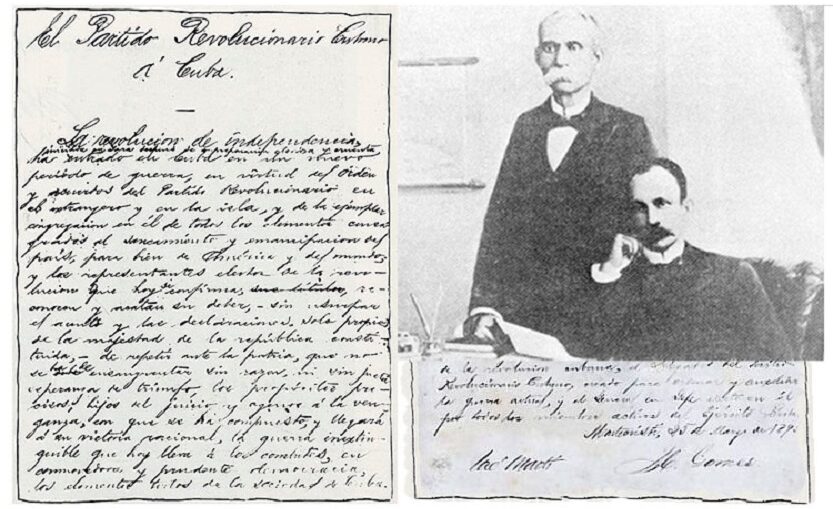 El Partido Revolucionario Cubano
á Cuba.
La revolucion de independencia,
iniciada en Yara despues de preparacion gloriosa y cruenta
ha entrado en Cuba en un nuevo
periodo de guerra, en virtud del orden
y acuerdos del Partido Revolucionario en
el extranjero y en la isla, y de la ejemplar
congregacion en él de todos los elementos consa-
grados al saneamiento y emancipacion del
pais, para bien de América y del mundo;
y los representantes electos de la revo-
lucion que hoy se confirma, re-
conocen y acatan su deber, - sin usurpar
el acento y las declaraciones solo propias
de la majestad de la república consti-
tuida, - de repetir ante la patria, que no
se debe ensangrentar sin razon, ni sin justa
esperanza de triunfo, los propósitos pre-
cisos, hijos del juicio y agenos á la ven-
ganza, con que se ha compuesto, y llegará
á su victoria racional, la guerra inextin-
guible que hoy lleva á los combates, en
conmovedora y prudente democracia,
los elementos todos de la sociedad de Cuba.
de la revolucion cubana, el Delegado del Partido
Revolucionario Cubano, creado para ordenar y auxiliar
la guerra actual, y el General en Jefe electo en él
por todos los miembros activos del Ejército Libertador
Montecristi, 25 de Marzo de 189
José Martí
M. Gomez